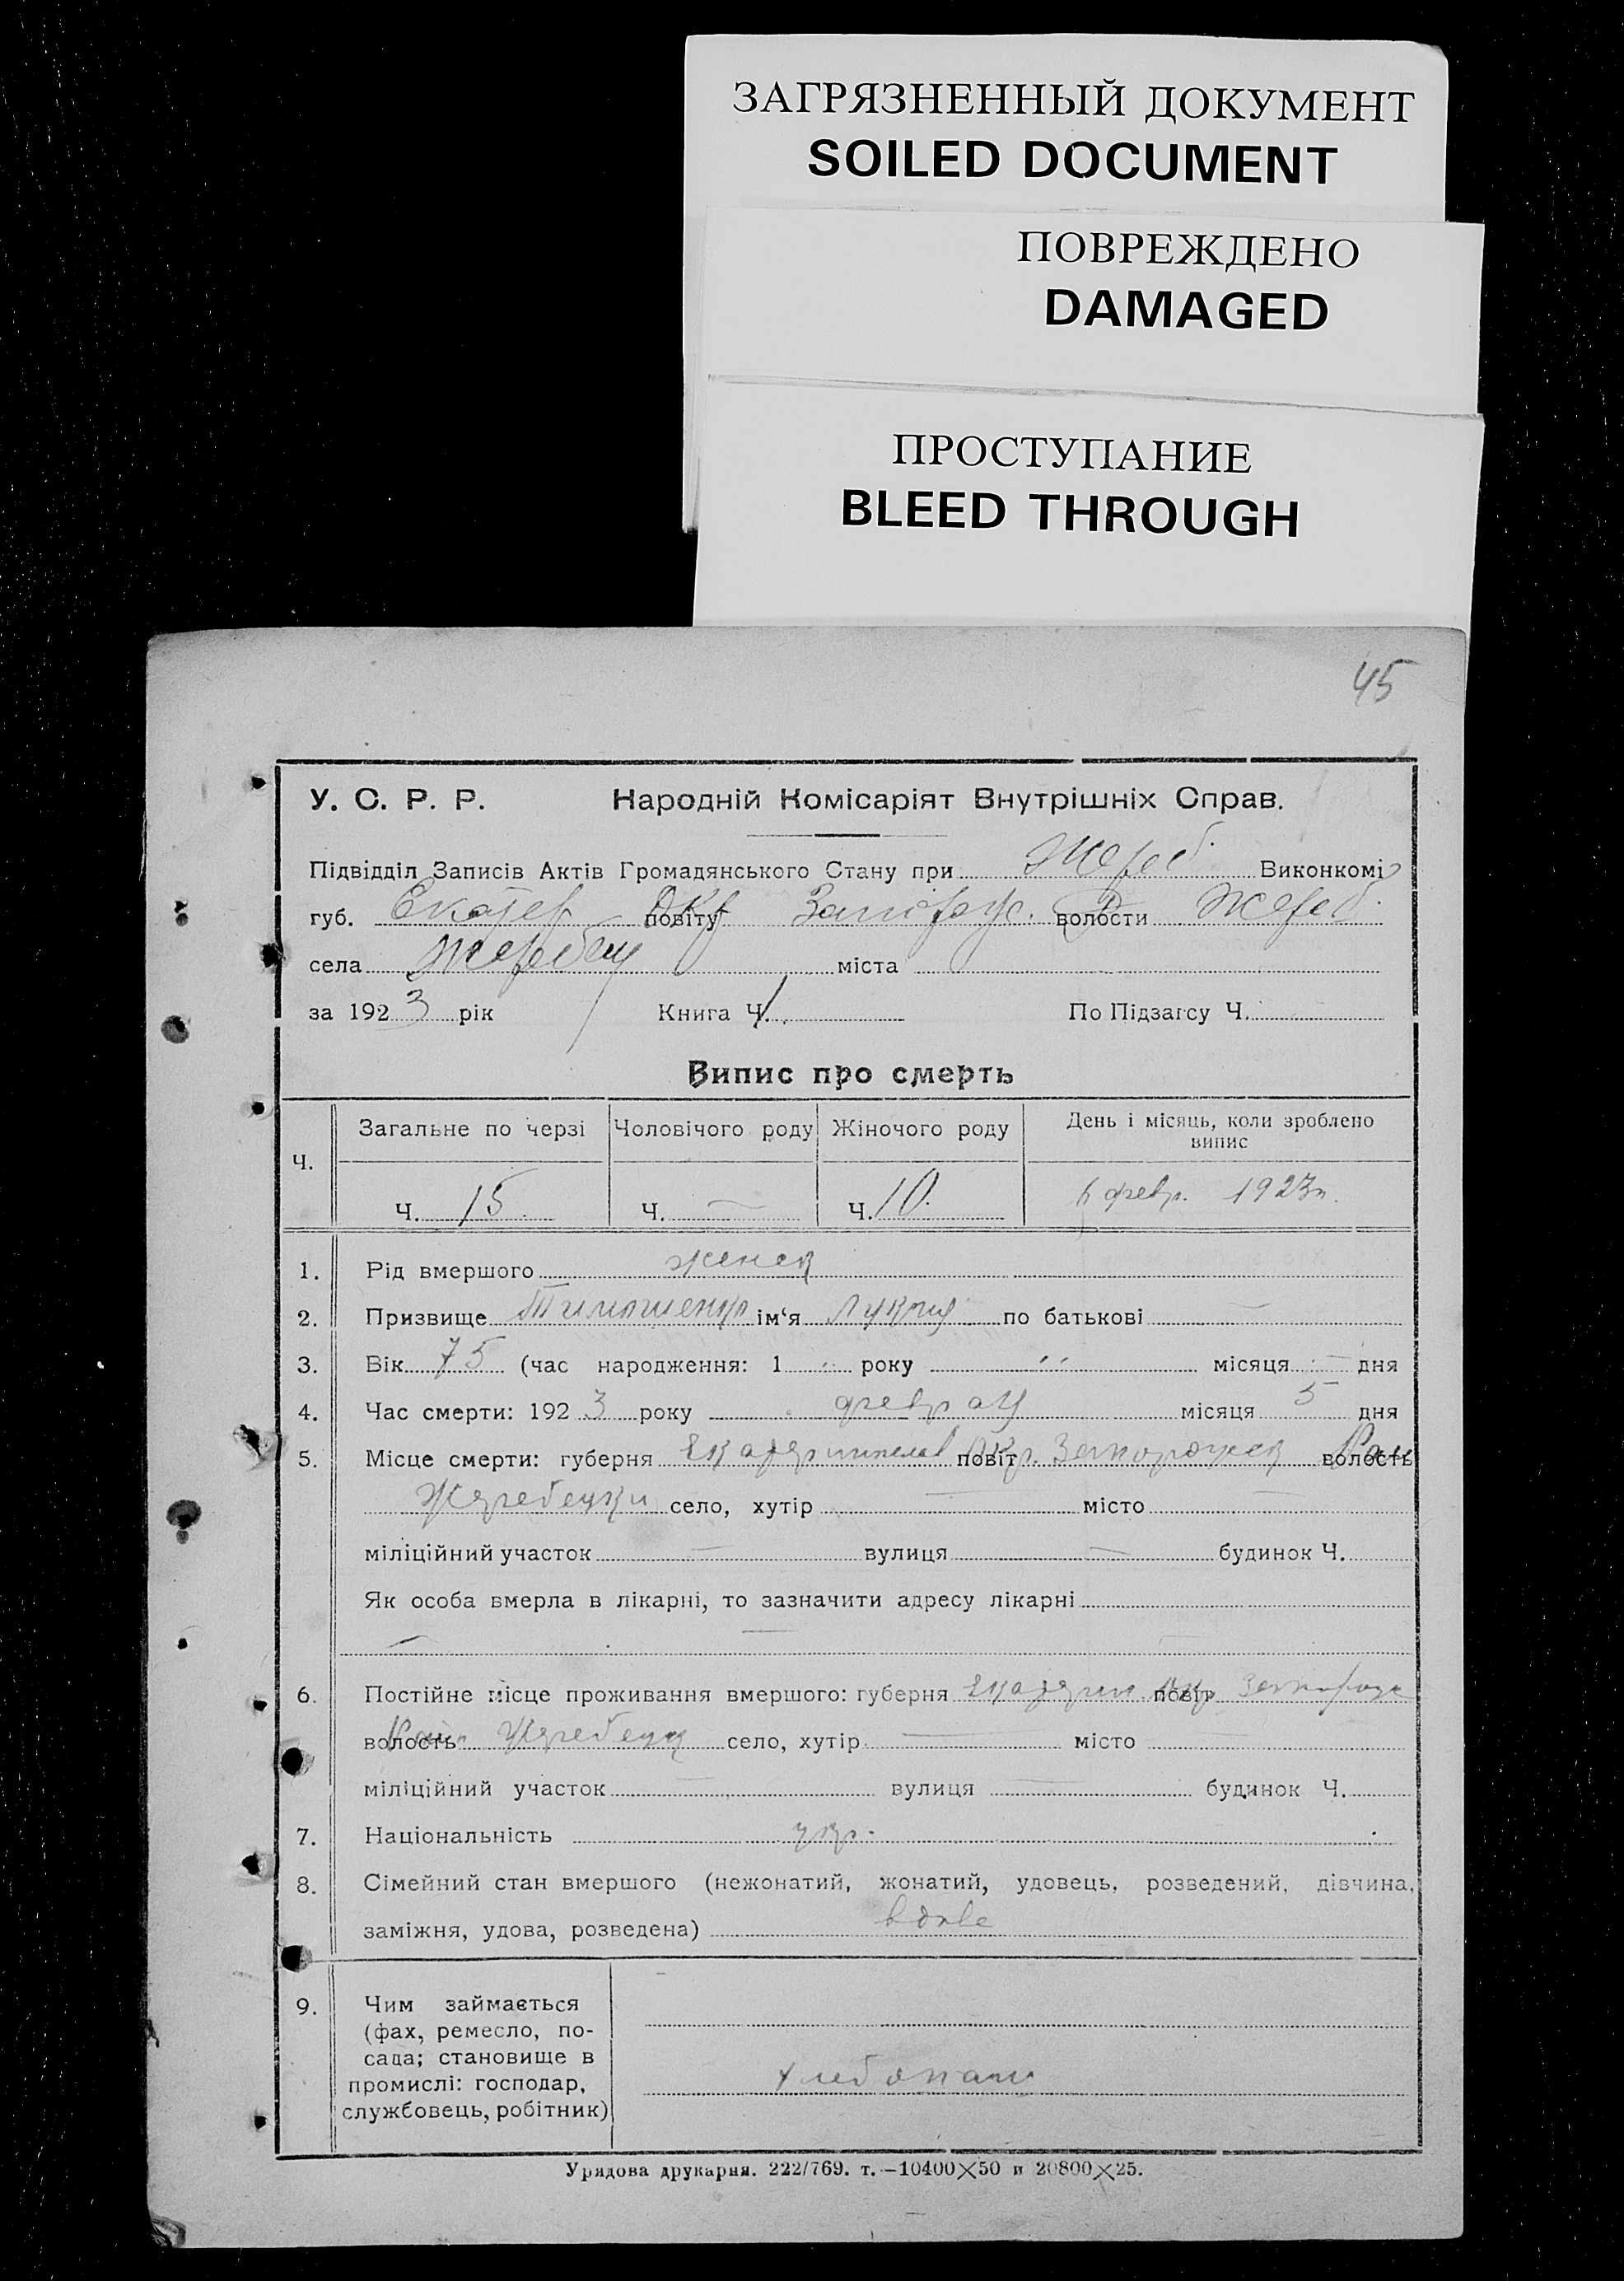 ЗАГРЯЗНЕННЫЙ ДОКУМЕНТ
SOILED DOCUMENT
ПОВРЕЖДЕНО
DAMAGED
ПРОСТУПАНИЕ
BLEED THROUGH
45
У. С. Р. Р. Народній Комісаріят Внутрішніх Справ.
Підвідділ Записів Актів Громадянського Стану при Жереб. Виконкомі
губ. Екатер повіту Окр Запорож. волости Р Жереб.
села міста
за 1923 рік Книга Ч. 1. По Підзагсу Ч.
Випис про смерть
Ч. Загальне по черзі Чоловічого роду Жіночого роду День і місяць, коли зроблено випис
Ч. 15. Ч. — Ч. 10. 6 февр. 1923г.
1. Рід вмершого женск
2. Призвище Тимошенко ім‘я Лукия по батькові —
3. Вік 75 (час народження: 1 " року " місяця — дня
4. Час смерти: 1923 року місяця 5 дня
5. Місце смерти: губерня Екатеринослав повіт Окр. Запорожск волость Рай
село, хутір — місто —
міліційний участок — вулиця — будинок Ч.
Як особа вмерла в лікарні, то зазначити адресу лікарні
— — —
6. Постійне місце проживання вмершого: губерня Екатерин повіт Окр Запорож
волость Рай. Жеребецк село, хутір — місто
міліційний участок — вулиця — будинок Ч.
7. Національність укр.
8. Сімейний стан вмершого (нежонатий, жонатий, удовець, розведений, дівчина,
заміжня, удова, розведена) вдова
9. Чим займається
(фах, ремесло, по-
сада; становище в
промислі: господар,
службовець, робітник)
хлебопаш
Урядова друкарня. 222/769. т.—10400×50 и 20800×25.